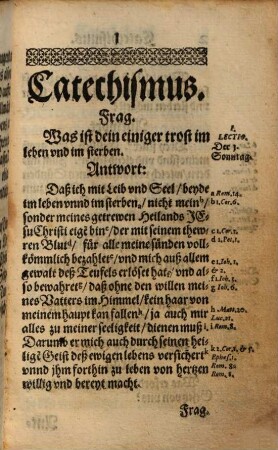 1
Catechismus.
Frag.
Was ist dein einiger trost im
leben vnd im sterben.
Antwort:
Daß ich mit Leib vnd Seel / beyde
im leben vnnd im sterben, nicht mein
sonder meines getrewen Heilands JE-
su Christi eigē bin / der mit seinem thew-
ren Blut / für alle meine sünden voll-
kömmlich bezahlet / vnd mich auß allem
gewalt deß Teufels erlöset hat / vnd al-
so bewahret / daß ohne den willen mei-
nes Vatters im Himmel / kein haar von
meinem haupt kan fallen / ja auch mir
alles zu meiner seeligkeit / dienen muß
Darumb er mich auch durch seinen hei-
ligē Geist deß ewigen lebens versichert
vnnd jhm forthin zu leben von hertzen
willig vnd bereyt macht.
Frag.
I.
LECTIO.
Der 1.
Sonntag.
a Rom. 14.
b 1. Cor. 6.
c 1. Cor. 3.
d 1. Pet. 1.
e 1. Joh. 1.
& 2.
f 1. Joh. 3.
g Joh. 6.
h Matt. 10.
Luc. 21.
i Rom. 8.
k 2. Cor. 1. & 5
Ephes. 1.
Rom. 8.